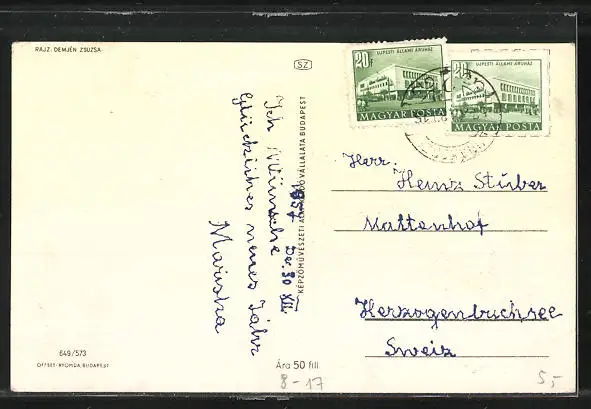 RAJZ: DEMJÉN ZSUZSA
SZ
20f
UJPESTI ÁLLAMI ÁRUHÁZ
MAGYAR POSTA
20f
UJPESTI ÁLLAMI ÁRUHÁZ
MAGYAR POSTA
1957 Dec. 30 XII
Ich Wünsche
glückliches neues Jahr
Mariska
KÉPZŐMŰVÉSZETI ALAP KIADÓVÁLLALATA BUDAPEST
Herr.
Heinz Stüber
Mattenhof
Herzogenbuchsee
Sweiz
649/573
OFFSET-NYOMDA, BUDAPEST
Ára 50 fill.
8-17
5,-